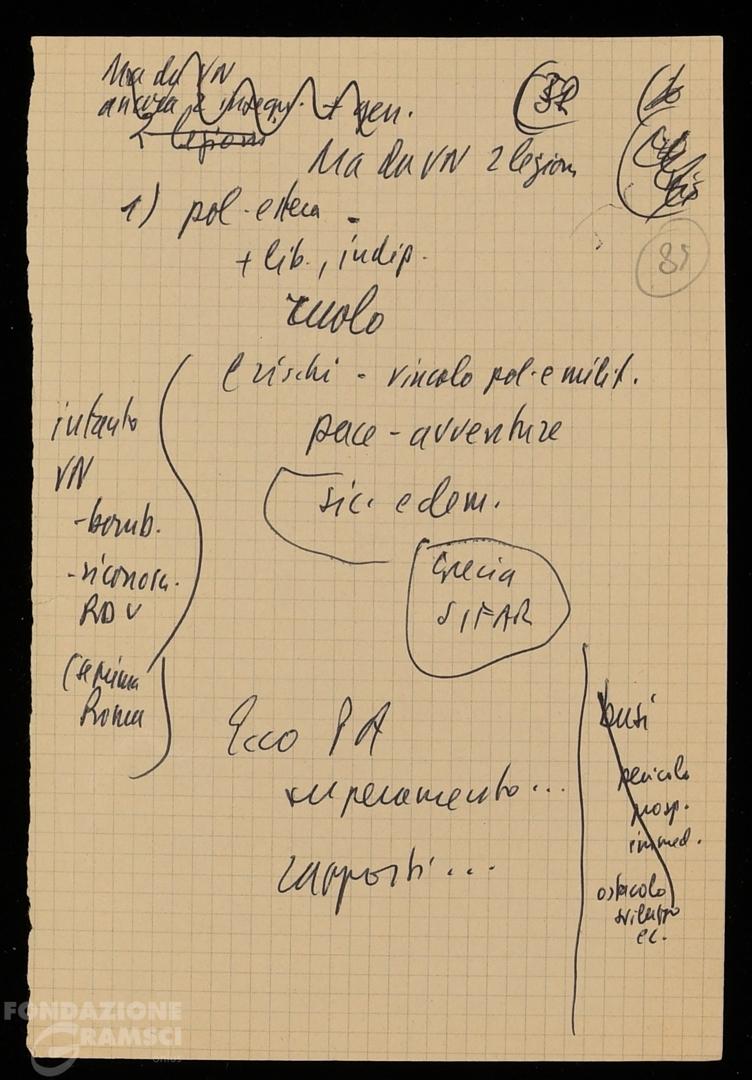 Ma da VN
ancora 2 insegn. + gen.
2 legioni
Ma da VN 2 legioni
1) pol. estera -
+ lib., indip.
ruolo
e rischi - vincolo pol. e milit.
pace - avventure
sic. e dem.
Grecia
SIFAR
intanto
VN
- bomb.
- riconosc.
RDV
(settima
Roma
Ecco PA
superamento...
rapporti...
basi
pericolo
prosp.
immed.
ostacolo
sviluppo
ec.
FONDAZIONE
GRAMSCI
onlus